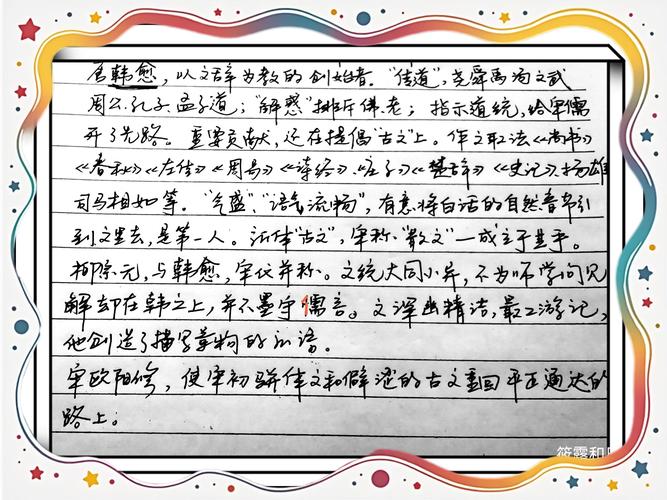 唐韩愈，以文辞为教的创始者。“传道”，尧舜禹汤文武
周公、孔子、孟子道；“解惑”排斥佛老；指示道统，给宋儒
开了先路。重要贡献，还在提倡“古文”上。作文取法《尚书》
《春秋》《左传》《周易》《诗经》、《庄子》《楚辞》《史记》、扬雄
司马相如等。“气盛”、“语气流畅”，有意将白话的自然音节引
到文里去，是第一人。活体“古文”，宋称“散文”一成立于其手。
柳宗元，与韩愈，宋代并称。文统大同小异，不为师学问见
解却在韩之上，并不墨守儒言。文深幽精洁，最工游记，
他创造了描写景物的新语。
宋欧阳修，使宋初骈体文和僻涩的古文重回平正通达的
路上。